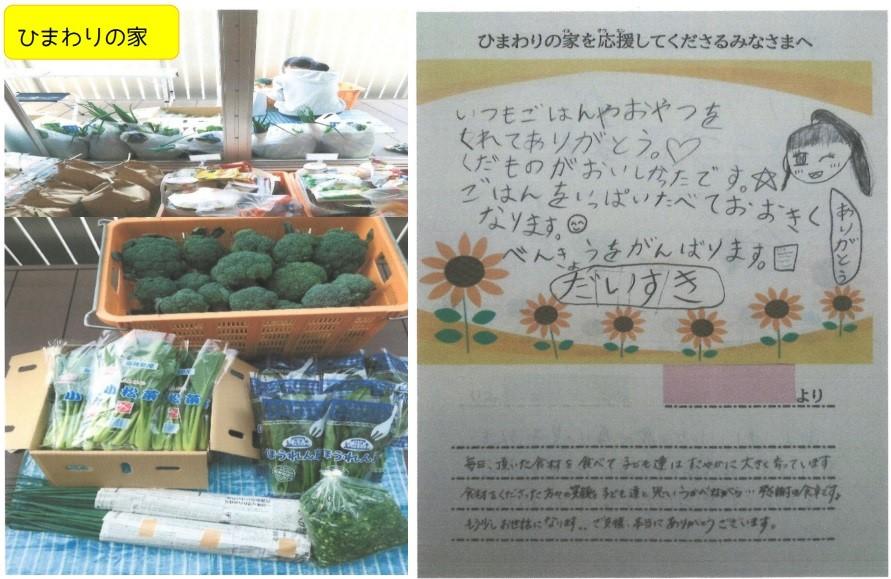 ひまわりの家
小松菜
小松菜
ほうれん草
ひまわりの家を応援してくださるみなさまへ
いつもごはんやおやつを
くれてありがとう。♡
くだものがおいしかったです。☆
ごはんをいっぱいたべておおきく
なります。
べんきょうをがんばります。
だいすき
ありがとう
より
毎日、頂いた食材を食べて子ども達はすこやかに大きく育っています
食材をくださった方々の笑顔を子ども達と思いうかべながら…感謝の食卓です。
もう少しお世話になります。ご支援、本当にありがとうございます。